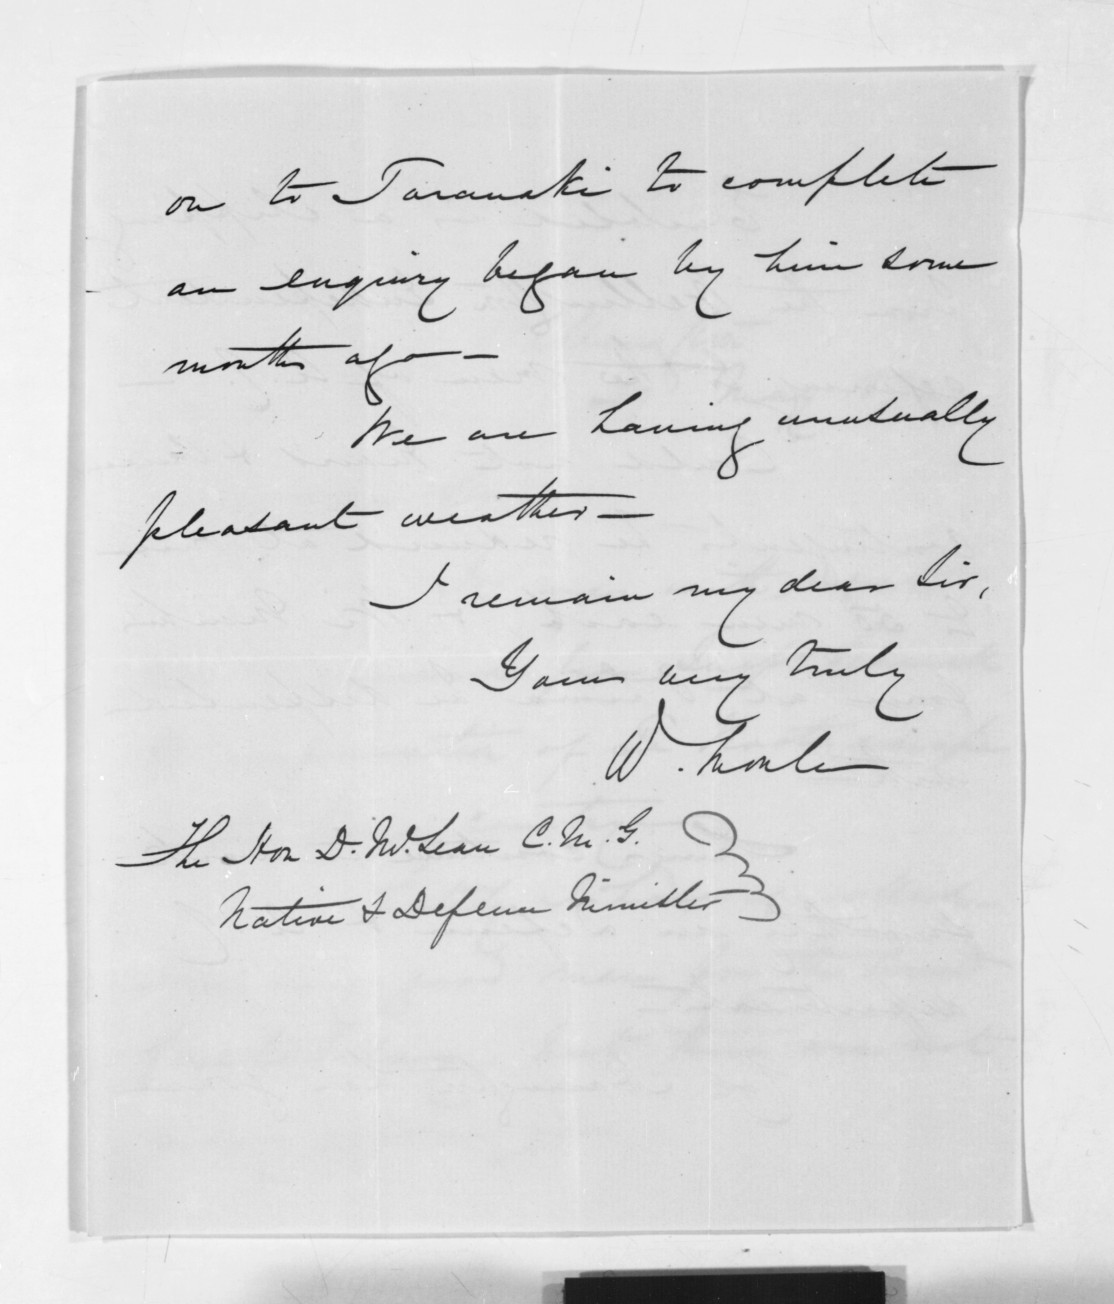 on to Taranaki to complete
an enquiry began by him some
months ago —
We are having unusually
pleasant weather —
I remain my dear Sir,
Yours very truly
W. Moule
The Hon D. McLean C.M.G.
Native & Defence Minister